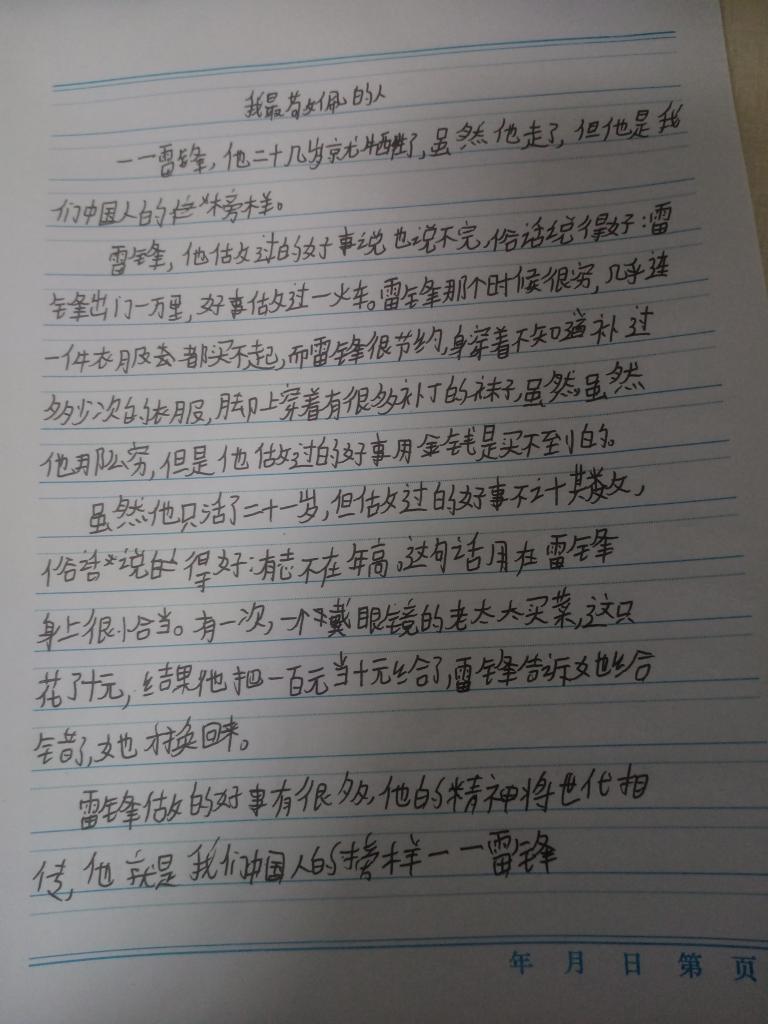 我最敬佩的人
一一雷锋，他二十几岁就牺牲了，虽然他走了，但他是我
们中国人的榜样。
雷锋，他做过的好事说也说不完，俗话说得好：雷
锋出门一万里，好事做过一火车。雷锋那个时候很穷，几乎连
一件衣服都买不起，而雷锋很节约，身穿着不知道补过
多少次的衣服，脚上穿着有很多补丁的袜子，虽然虽然
他那么穷，但是他做过的好事用金钱是买不到的。
虽然他只活了二十一岁，但做过的好事不计其数，
俗话说的得好：有志不在年高。这句话用在雷锋
身上很恰当。有一次，一个戴眼镜的老太太买菜，这只
花了十元，结果他把一百元当十元给了，雷锋告诉她给
错了，她才换回来。
雷锋做的好事有很多，他的精神将世代相
传，他就是我们中国人的榜样一一雷锋
年 月 日 第 页